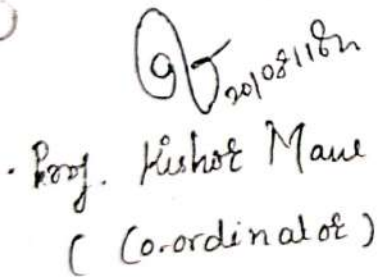 Prof. Kishor Mane
(Co.ordinator)